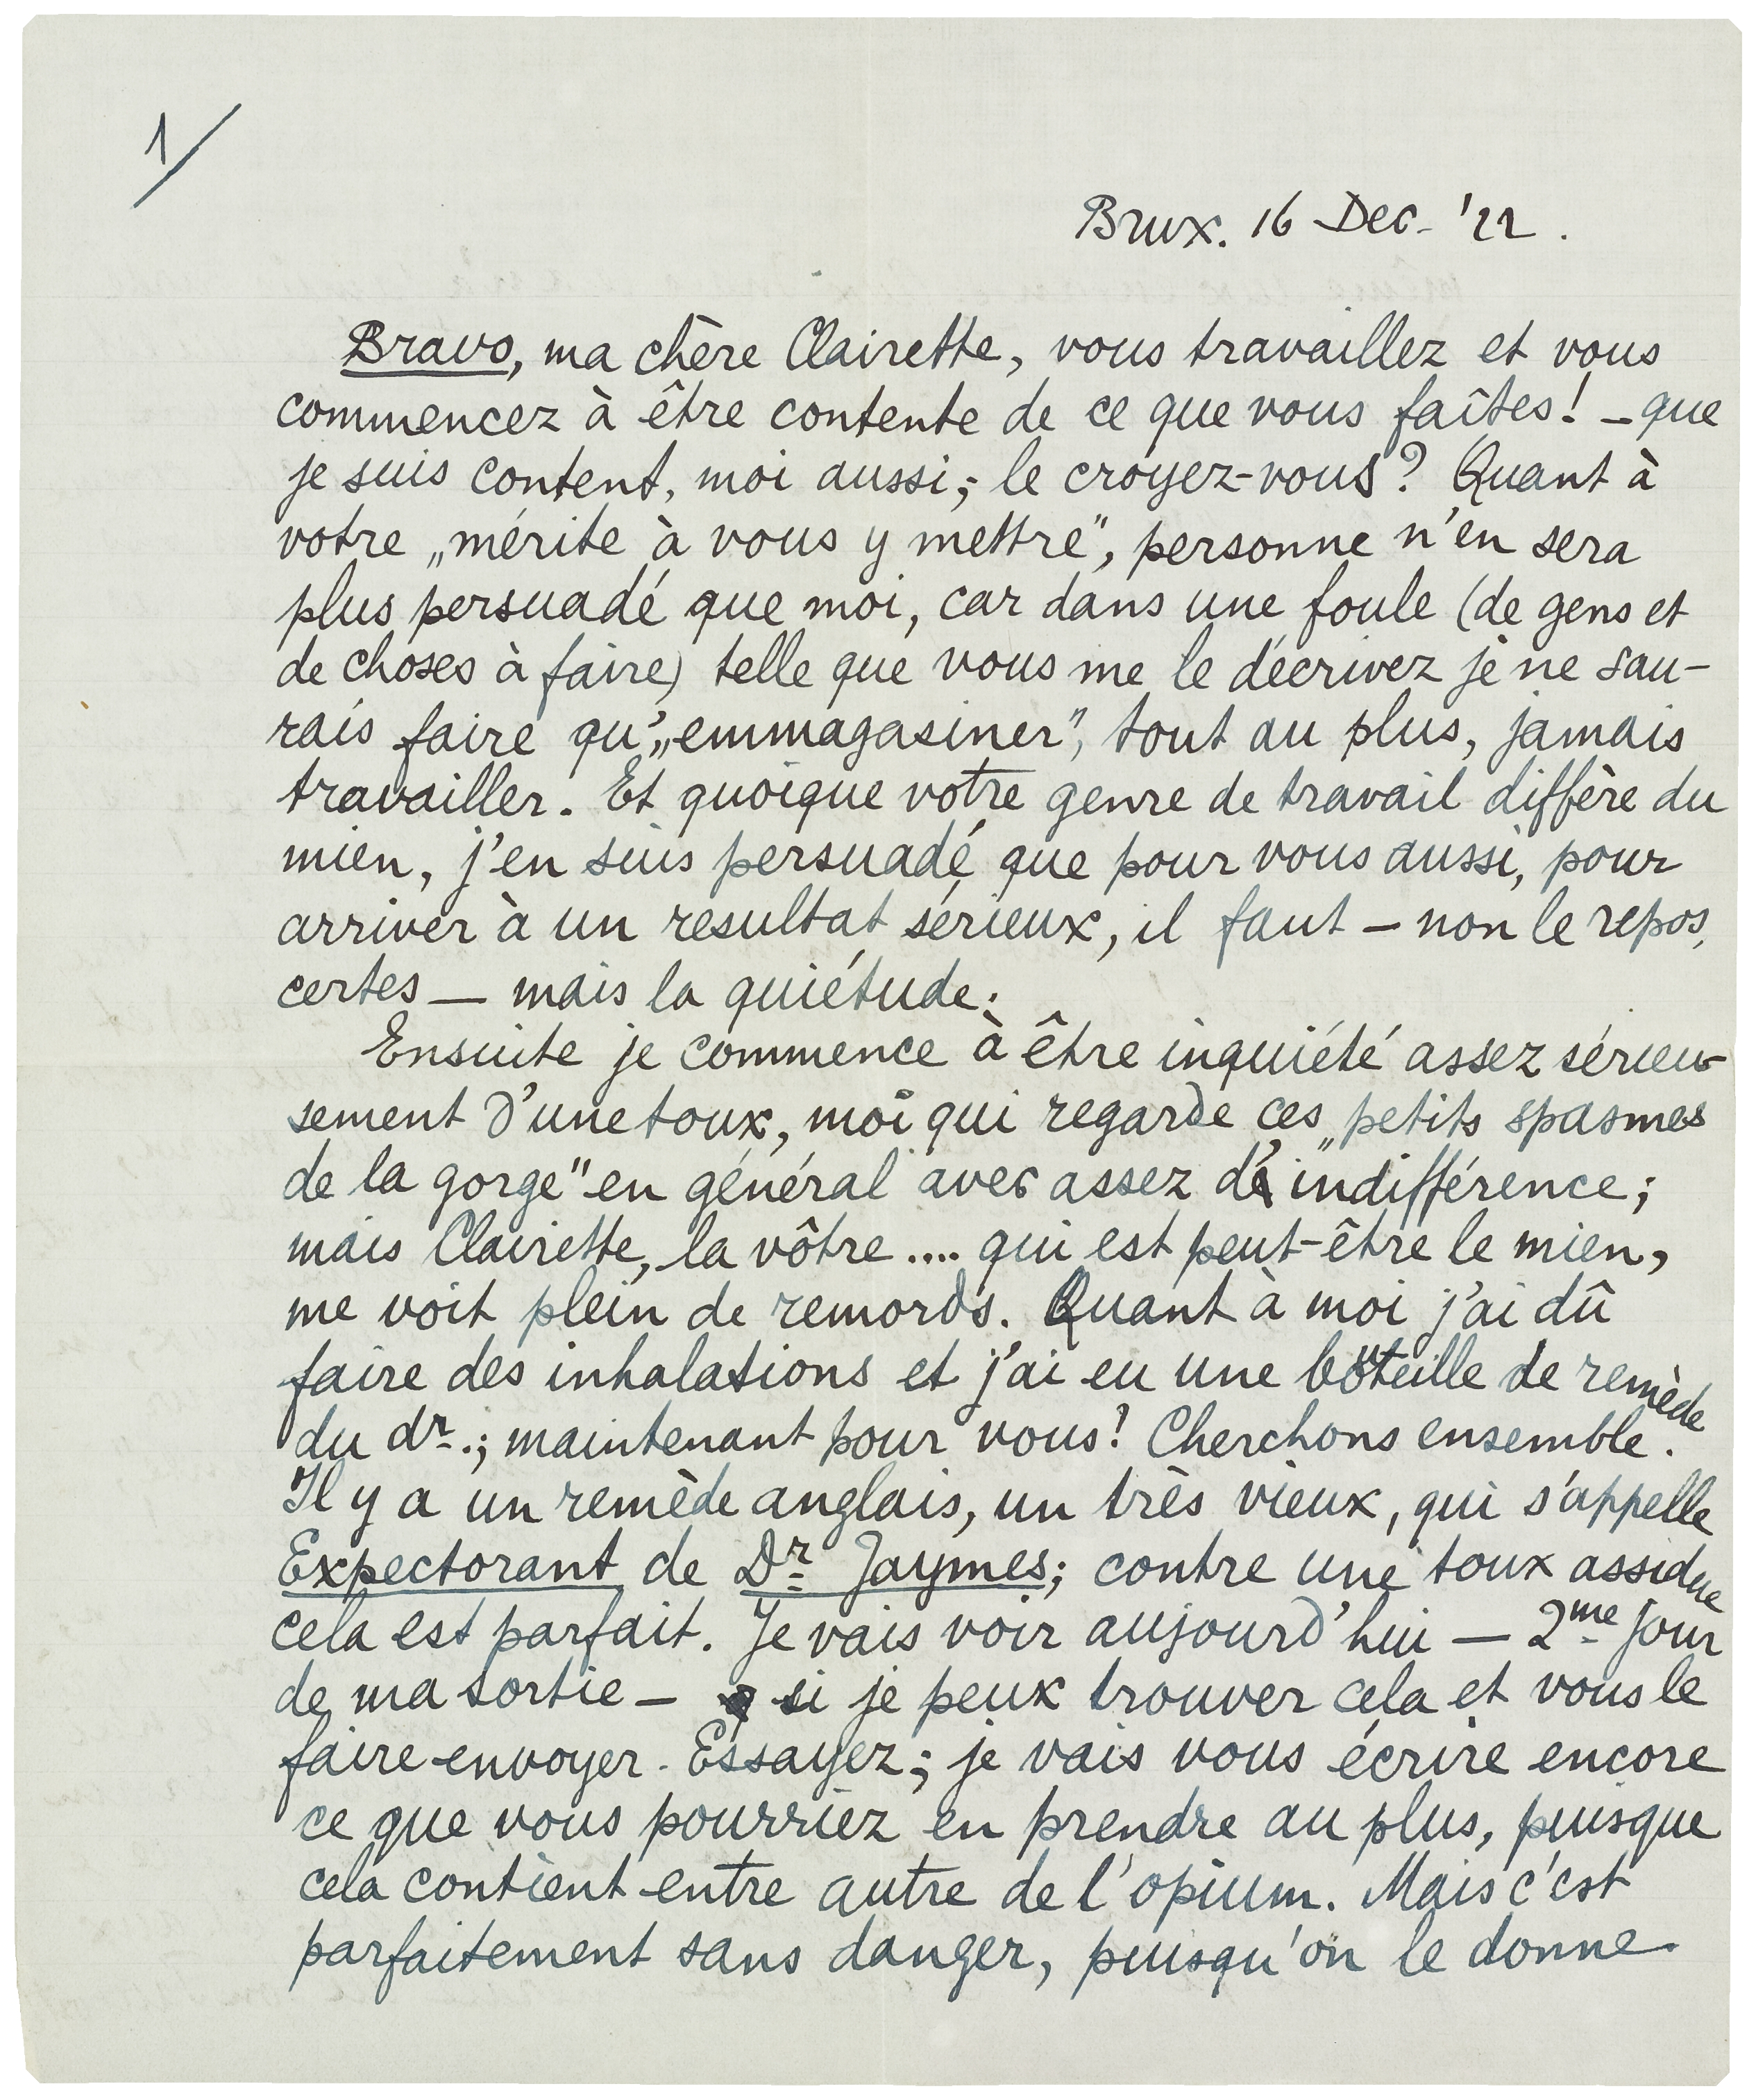 1/
Brux. 16 Dec. '22.
Bravo, ma chère Clairette, vous travaillez et vous
commencez à être contente de ce que vous faîtes! – que
je suis content, moi aussi, - le croyez-vous? Quant à
votre „mérite à vous y mettre", personne n'en sera
plus persuadé que moi, car dans une foule (de gens et
de choses à faire) telle que vous me le décrivez je ne sau-
rais faire qu'„emmagasiner", tout au plus, jamais
travailler. Et quoique votre genre de travail diffère du
mien, j'en suis persuadé que pour vous aussi, pour
arriver à un resultat sérieux, il faut – non le repos,
certes – mais la quiétude.
Ensuite je commence à être inquiété assez sérieu-
sement d'une toux, moi qui regarde ces „petits spasmes
de la gorge" en général avec assez d'indifférence;
mais Clairette, la vôtre .... qui est peut-être le mien,
me voit plein de remords. Quant à moi j'ai dû
faire des inhalations et j'ai eu une bouteille de remède
du dr.; maintenant pour vous! Cherchons ensemble.
Il y a un remède anglais, un très vieux, qui s'appelle
Expectorant de Dr Jaymes; contre une toux assidue
cela est parfait. Je vais voir aujourd'hui – 2me jour
de ma sortie – si je peux trouver cela et vous le
faire envoyer. Essayez; je vais vous écrire encore
ce que vous pourriez en prendre au plus, puisque
cela contient entre autre de l'opium. Mais c'est
parfaitement sans danger, puisqu'on le donne